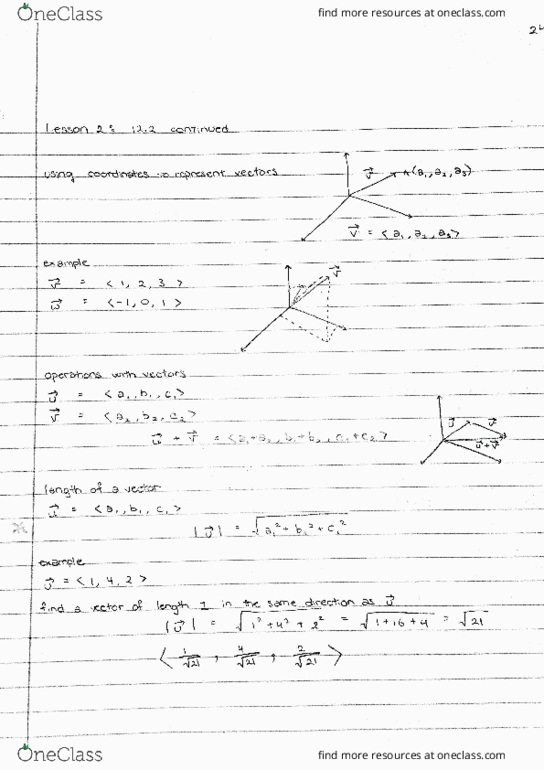 OneClass
find more resources at oneclass.com
Lesson 2: 12.2 continued
using coordinates to represent vectors
v⃗
A(a₁, a₂, a₃)
v⃗ = <a₁, a₂, a₃>
example
v⃗ = <1, 2, 3>
w⃗ = <-1, 0, 1>
v⃗
operations with vectors
u⃗ = <a₁, b₁, c₁>
v⃗ = <a₂, b₂, c₂>
u⃗ + v⃗ = <a₁+a₂, b₁+b₂, c₁+c₂>
u⃗
v⃗
u⃗+v⃗
length of a vector
u⃗ = <a₁, b₁, c₁>
|u⃗| = √a₁²+b₁²+c₁²
example
u⃗ = <1, 4, 2>
find a vector of length 1 in the same direction as u⃗
|u⃗| = √1²+4²+2² = √1+16+4 = √21
<1/√21, 4/√21, 2/√21>
OneClass
find more resources at oneclass.com